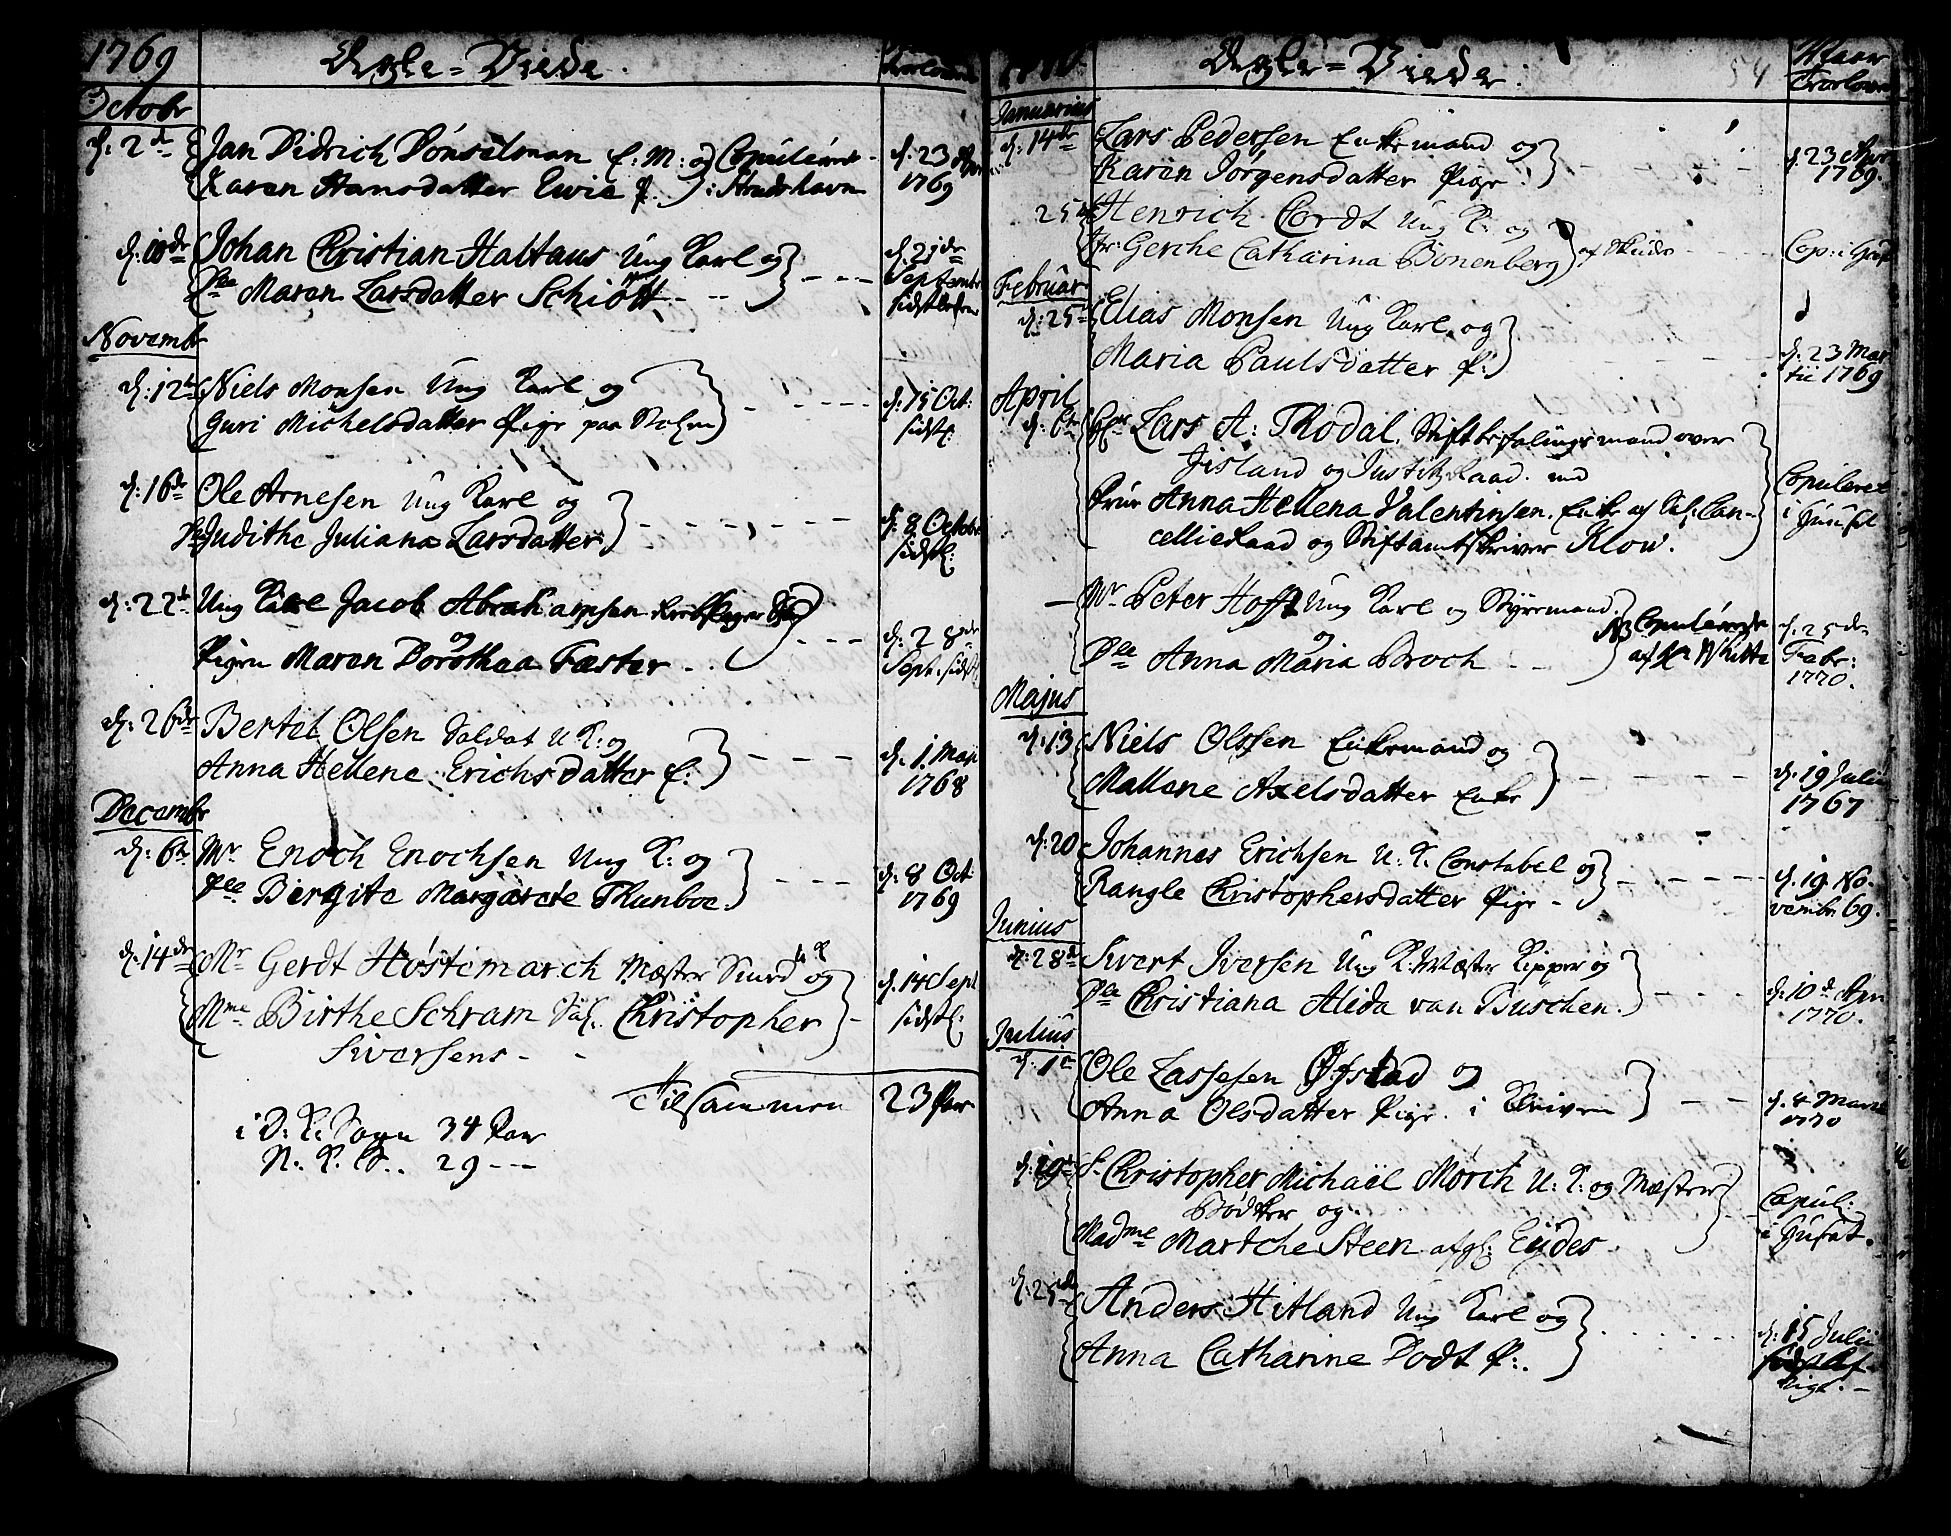 1769
Ægte-Viede.
Octobr
d. 2de Jan Didrich Dónselman E: M: og Copuleret
Karen Hansdatter Ewie P.
d. 23
1769
d. 10de Johan Christian Haltaus Ung Karl og
Maren Larsdatter Schiött
d. 21de
Septembr
sidstleden
Novembr
d. 12te Niels Monsen Ung Karl og
Guri Michelsdatter Pige paa
d. 15 Oct:
sidstl:
d. 16de Ole Arnesen Ung Karl og
Judithe Juliana Larsdatter
d. 8 Octobr
sidstl:
d. 22de Ung Karl Jacob Abrahamsen
og
Pigen Maren Dorothea Fæster
d. 28de
Sept: sidstl
d. 26de Bertel Olsen Soldat U. K: og
Anna Hellene Erichsdatter E:
d. 1. Maji
1768
Decembr
d. 6te Mr Enoch Enochsen Ung K: og
Birgite Margarete Thunboe.
d. 8 Oct
1769
d. 14de Mr Gerdt Hóstemarch Mæster Smed U K og
Mme Birthe Schram Sal. Christopher
Siversens
d. 14 Sept
sidstl:
Tilsammen 23 Par
i D: K: Sogn 34 Par
N. K. S. 29 ---
1770.
Ægte-Viede:
54
Naar
Trolovede
Januarius
d. 14de Lars Pedersen Enkemand og
Karen Jörgensdatter Pige
d. 23 Apr
1769.
25de Henrich Cordt Ung K: og
Jfr: Gerche Catharina Bönenberg
Cop: i
Februar
d. 25de Elias Monsen Ung Karl og
Maria Paulsdatter P:
d. 23 Mar
tii 1769
April
d. 6te Hr Lars A: Thodal, Stiftbefalingsmand over
Jisland og Justitz Raad. med
Frue Anna Hellena Valentinsen. Enke af Sal: Can-
cellieRaad og Stiftamtskriver Klow.
Copuleret
i Huuset
Mr Peter Hofft Ung Karl og Styrmand.
og
Anna Maria Broch
NB Copulerede
af Hr Witte
d. 25de
Febr:
1770.
Majus
d. 13 Niels Olssen Enkemand og
Mallene Axelsdatter Enke
d. 19 Julii
1767
d. 20 Johannes Erichsen U. K. Constabel og
Rangle Christophersdatter Pige
d. 19 No-
vembr 69.
Junius
d. 28de Sivert Iversen Ung K: Mæster Kipper og
Christiana Alida van Buschen.
d. 10de Apr
1770.
Julius
d. 1te Ole Lassesen Öfstad og
Anna Olsdatter Pige.
d. 4 Martii
1770
d. 19de Sr Christopher Michaël Mörch U: K: og Mæster
Bödker og
Madme Martche Steen afgl: Eydes
Copul:
i Huset.
d. 25de Anders Hitland Ung Karl og
Anna Catharine Dodt P:.
d. 15 Julii